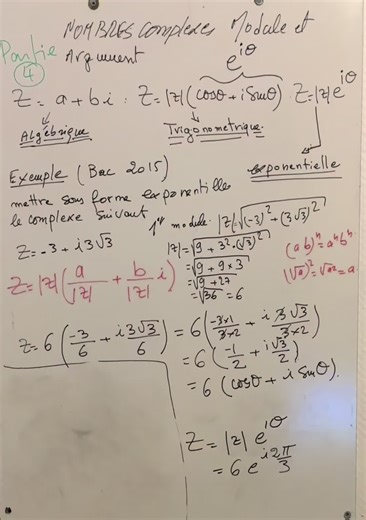 NOMBRES Complexes Module et
Partie 4
Argument
e^{iθ}
Z = a + bi . Z = |z| (cosθ + i Sinθ) . Z = |z| e^{iθ}
Algébrique
Trigonometrique.
exponentielle
Exemple (Bac 2015)
mettre sous forme exponentielle
le complexe suivant
Z = -3 + i3√3
Z = |z| (a/|z| + b/|z| i)
1er module: |Z| = √((-3)² + (3√3)²)
|Z| = √(9 + 3² · (√3)²)
= √(9 + 9 × 3)
= √(9 + 27)
= √36 = 6
(ab)ⁿ = aⁿbⁿ
(√a)² = √a² = a.
Z = 6 (-3/6 + i3√3/6) = 6 (-3×1/3×2 + i 3√3/3×2)
= 6 (-1/2 + i√3/2)
= 6 (cosθ + i Sinθ).
Z = |z| e^{iθ}
= 6 e^{i2π/3}